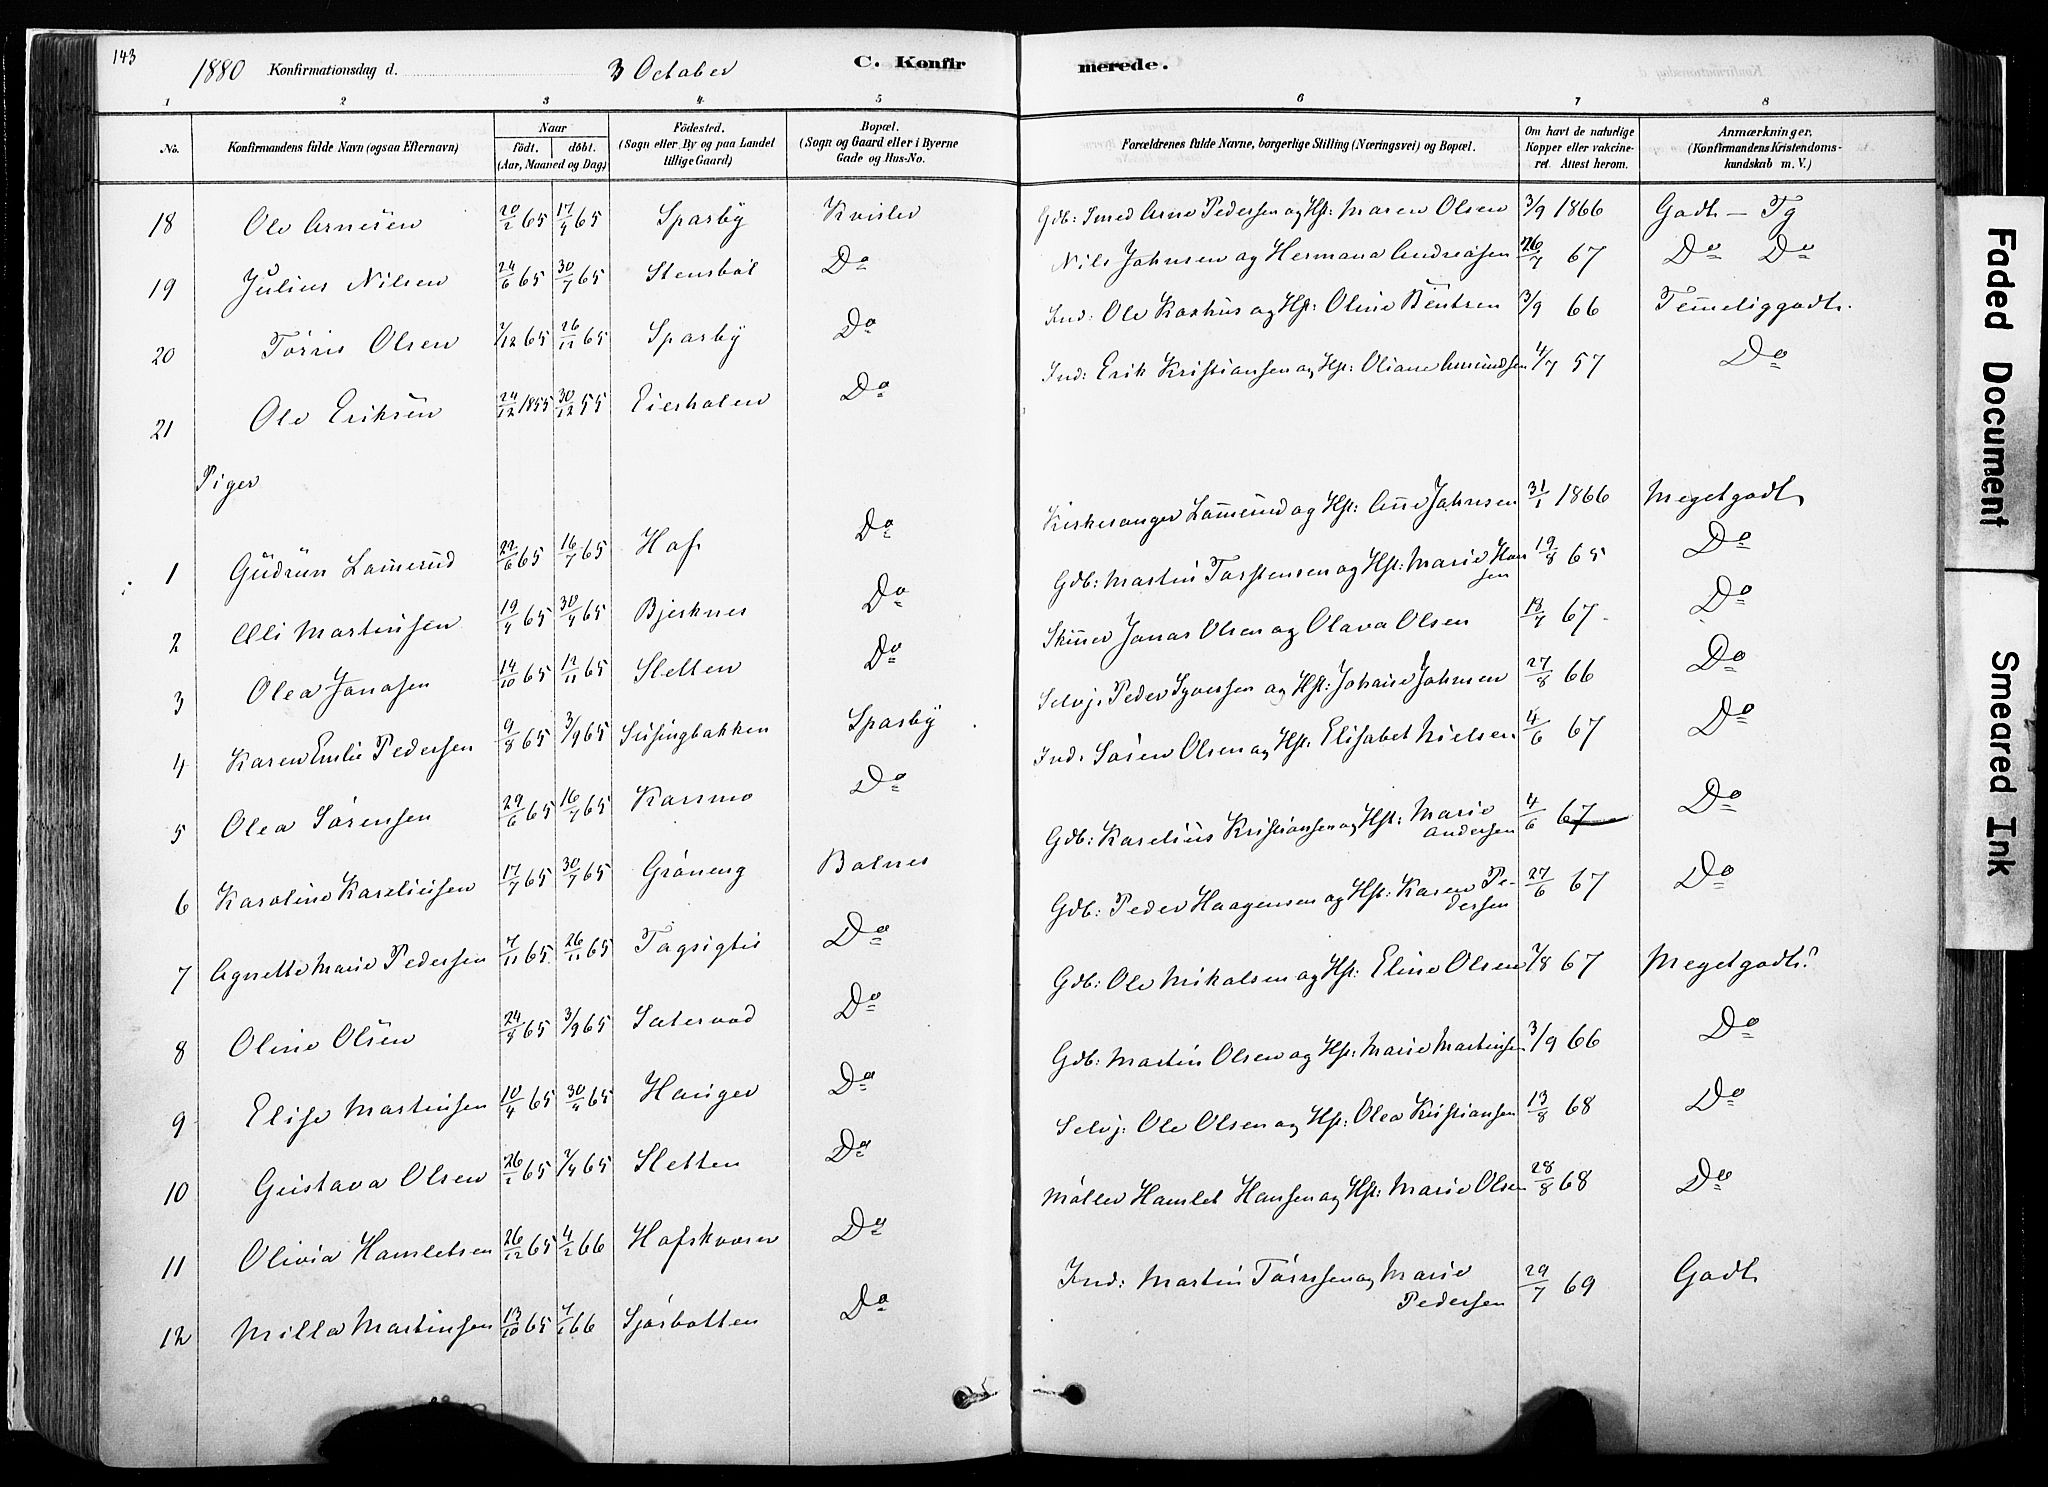 143
1880 Konfirmationsdag d. 3 October C. Konfirmerede.
1 2 3 4 5 6 7 8
No. Konfirmandens fulde Navn (ogsaa Efternavn) Naar födt. döbt. (Aar, Maaned og Dag) Födested. (Sogn eller By og paa Landet tillige Gaard) Bopæl. (Sogn og Gaard eller i Byerne Gade og Hus-No. Forældrenes fulde Navne, borgerlige Stilling (Næringsvei) og Bopæl. Om havt de naturlige Kopper eller vakcineret. Attest herom. Anmærkninger, (Konfirmandens Kristendomskundskab m. V.)
18 Ole Arnesen 20/2 65 17/4 65 Sparby Kvisler Gdb: Smed Arne Pedersen og Hst: Maren Olsen 3/9 1866 Godt - Tg
19 Julius Nilsen 24/6 65 30/7 65 Stensböl Do Nils Johnsen og Hermana Andreasen 26/7 67 Do Do
20 Törris Olsen 1/12 65 26/12 65 Sparby Do Ind: Ole Roshus og Hst: Oline Bentsen 3/9 66 Temeliggodt.
21 Ole Eriksen 24/12 1855 30/12 55 Eierholen Do Ind: Erik Kristiansen og Hst: Oliane Amundsen 4/7 57 Do
Piger
1 Gudrun Lamerud 22/6 65 16/7 65 Hof Do Kirkesanger Lamerud og Hst: Ane Johnsen 31/1 1866 Megetgodt
2 Oli Martinsen 19/4 65 30/4 65 Bjerknes Do Gdb: Martin Torstensen og Hst: Marie Hansen 19/8 65 Do
3 Olea Jonasen 14/10 65 12/11 65 Sletten Do Skiner Jonas Olsen og Olava Olsen 18/7 67 Do
4 Karen Emilie Pedersen 9/8 65 3/9 65 Susingbakken Sparby Selvj. Peder Syversen og Hst: Johane Johnsen 27/8 66 Do
5 Olea Sörensen 29/6 65 16/7 65 Karsmo Do Ind: Sören Olsen og Hst: Elisabet Nielsen 4/6 67 Do
6 Karoline Kareliusen 17/7 65 30/7 65 Gröneng Bolnes Gdb: Karelius Kristiansen og Hst: Marie Andersen 4/6 67 Do
7 Agnette Marie Pedersen 7/11 65 26/11 65 Tagsigtis Do Gdb: Peder Haagensen og Hst: Karen Pedersen 27/6 67 Do
8 Oline Olsen 24/8 65 3/9 65 Do Gdb: Ole Mikalsen og Hst: Eline Olsen 7/8 67 Megetgodt?
9 Elise Martinsen 10/4 65 30/4 65 Hauger Do Gdb: Martin Olsen og Hst: Marie Martinsen 3/9 66 Do
10 Gustava Olsen 26/2 65 2/4 65 Sletten Do Selvj: Ole Olsen og Hst: Olea Kristiansen 13/8 68 Do
11 Olivia Hamletsen 26/12 65 4/2 66 Hofskværn Do Möller Hamlet Hansen og Hst: Marie Olsen 28/8 68 Do
12 Milla Martinsen 13/10 65 7/1 66 Sjörbotten Do Ind: Martin Törrisen og Marie Pedersen 29/7 69 Godt
Faded Document
Smeared Ink